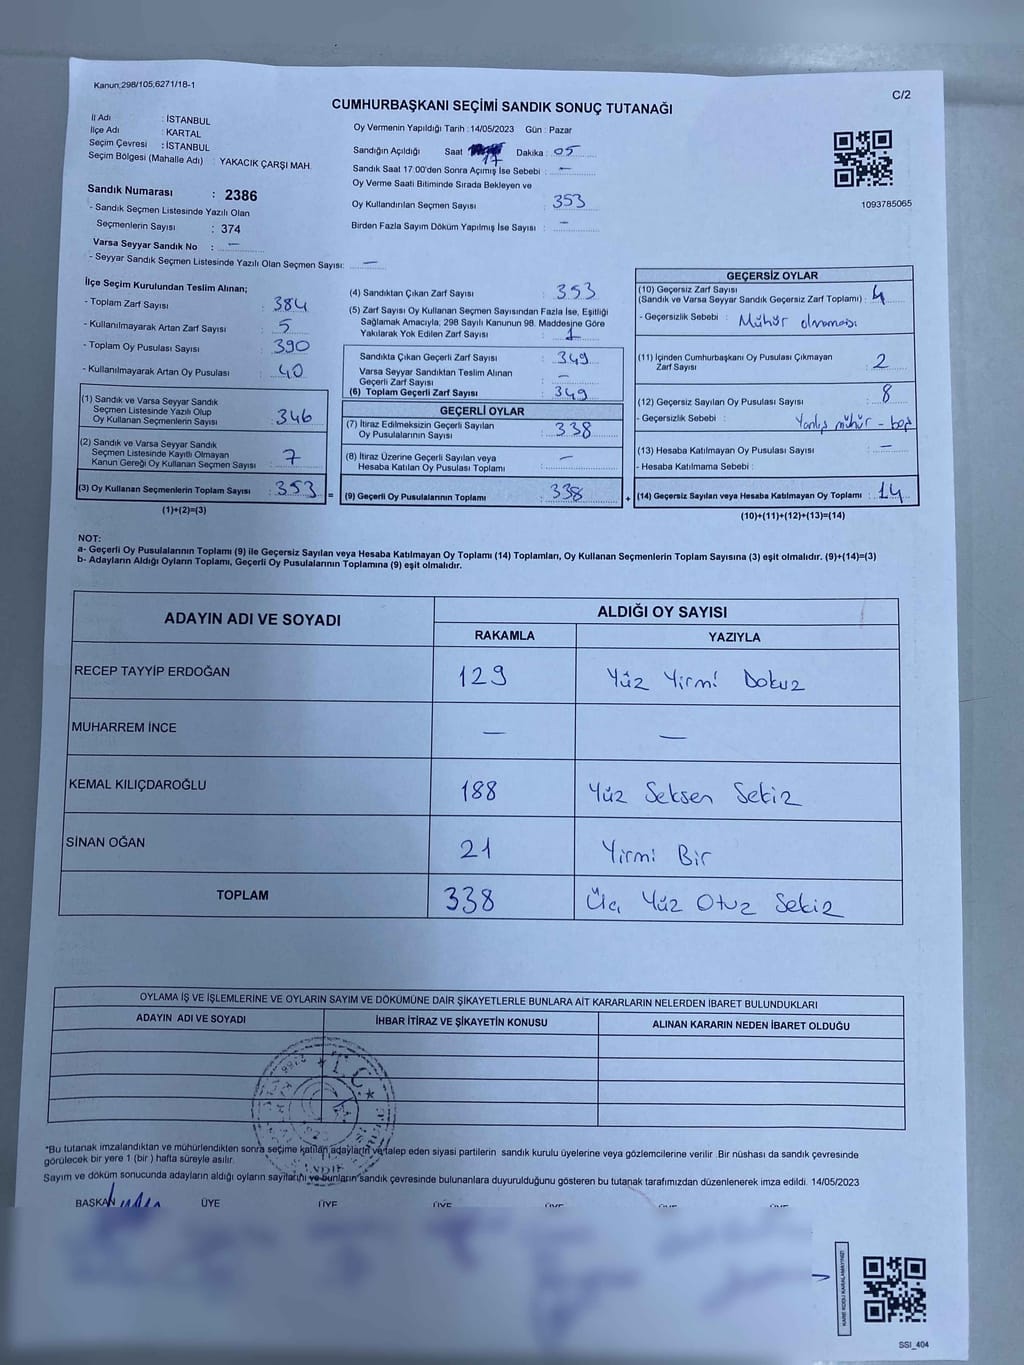 Kanun;298/105,6271/18-1
C/2
CUMHURBAŞKANI SEÇİMİ SANDIK SONUÇ TUTANAĞI
İl Adı : İSTANBUL
İlçe Adı : KARTAL
Seçim Çevresi : İSTANBUL
Seçim Bölgesi (Mahalle Adı) : YAKACIK ÇARŞI MAH.
Sandık Numarası : 2386
- Sandık Seçmen Listesinde Yazılı Olan
Seçmenlerin Sayısı : 374
Varsa Seyyar Sandık No : —
- Seyyar Sandık Seçmen Listesinde Yazılı Olan Seçmen Sayısı: —
Oy Vermenin Yapıldığı Tarih : 14/05/2023 Gün : Pazar
Sandığın Açıldığı Saat 17 Dakika : 05
Sandık Saat 17:00'den Sonra Açımış İse Sebebi : —
Oy Verme Saati Bitiminde Sırada Bekleyen ve
Oy Kullandırılan Seçmen Sayısı : 353
Birden Fazla Sayım Döküm Yapılmış İse Sayısı : —
1093785065
İlçe Seçim Kurulundan Teslim Alınan;
- Toplam Zarf Sayısı : 384
- Kullanılmayarak Artan Zarf Sayısı : 5
- Toplam Oy Pusulası Sayısı : 390
- Kullanılmayarak Artan Oy Pusulası : 40
(1) Sandık ve Varsa Seyyar Sandık
Seçmen Listesinde Yazılı Olup
Oy Kullanan Seçmenlerin Sayısı : 346
(2) Sandık ve Varsa Seyyar Sandık
Seçmen Listesinde Kayıtlı Olmayan
Kanun Gereği Oy Kullanan Seçmen Sayısı : 7
(3) Oy Kullanan Seçmenlerin Toplam Sayısı : 353 =
(1)+(2)=(3)
(4) Sandıktan Çıkan Zarf Sayısı : 353
(5) Zarf Sayısı Oy Kullanan Seçmen Sayısından Fazla İse, Eşitliği
Sağlamak Amacıyla, 298 Sayılı Kanunun 98. Maddesine Göre
Yakılarak Yok Edilen Zarf Sayısı : 1
Sandıkta Çıkan Geçerli Zarf Sayısı : 349
Varsa Seyyar Sandıktan Teslim Alınan
Geçerli Zarf Sayısı : —
(6) Toplam Geçerli Zarf Sayısı : 349
GEÇERLİ OYLAR
(7) İtiraz Edilmeksizin Geçerli Sayılan
Oy Pusulalarının Sayısı : 338
(8) İtiraz Üzerine Geçerli Sayılan veya
Hesaba Katılan Oy Pusulası Toplamı : —
(9) Geçerli Oy Pusulalarının Toplamı : 338 +
GEÇERSİZ OYLAR
(10) Geçersiz Zarf Sayısı
(Sandık ve Varsa Seyyar Sandık Geçersiz Zarf Toplamı) : 4
- Geçersizlik Sebebi : Mühür olmaması
(11) İçinden Cumhurbaşkanı Oy Pusulası Çıkmayan
Zarf Sayısı : 2
(12) Geçersiz Sayılan Oy Pusulası Sayısı : 8
- Geçersizlik Sebebi : Yanlış mühür - boş
(13) Hesaba Katılmayan Oy Pusulası Sayısı : —
- Hesaba Katılmama Sebebi :
(14) Geçersiz Sayılan veya Hesaba Katılmayan Oy Toplamı : 14
(10)+(11)+(12)+(13)=(14)
NOT:
a- Geçerli Oy Pusulalarının Toplamı (9) ile Geçersiz Sayılan veya Hesaba Katılmayan Oy Toplamı (14) Toplamları, Oy Kullanan Seçmenlerin Toplam Sayısına (3) eşit olmalıdır. (9)+(14)=(3)
b- Adayların Aldığı Oyların Toplamı, Geçerli Oy Pusulalarının Toplamına (9) eşit olmalıdır.
ADAYIN ADI VE SOYADI ALDIĞI OY SAYISI
RAKAMLA YAZIYLA
RECEP TAYYİP ERDOĞAN 129 Yüz Yirmi Dokuz
MUHARREM İNCE — —
KEMAL KILIÇDAROĞLU 188 Yüz Seksen Sekiz
SİNAN OĞAN 21 Yirmi Bir
TOPLAM 338 Üç Yüz Otuz Sekiz
OYLAMA İŞ VE İŞLEMLERİNE VE OYLARIN SAYIM VE DÖKÜMÜNE DAİR ŞİKAYETLERLE BUNLARA AİT KARARLARIN NELERDEN İBARET BULUNDUKLARI
ADAYIN ADI VE SOYADI İHBAR İTİRAZ VE ŞİKAYETİN KONUSU ALINAN KARARIN NEDEN İBARET OLDUĞU
T.C.
*Bu tutanak imzalandıktan ve mühürlendikten sonra seçime katılan adayların ve talep eden siyasi partilerin sandık kurulu üyelerine veya gözlemcilerine verilir .Bir nüshası da sandık çevresinde
görülecek bir yere 1 (bir ) hafta süreyle asılır.
Sayım ve döküm sonucunda adayların aldığı oyların sayılarını ve bunların sandık çevresinde bulunanlara duyurulduğunu gösteren bu tutanak tarafımızdan düzenlenerek imza edildi. 14/05/2023
BAŞKAN ÜYE ÜYE ÜYE ÜYE ÜYE ÜYE
KARE KODU KARALAMAYINIZ!
SSI_404